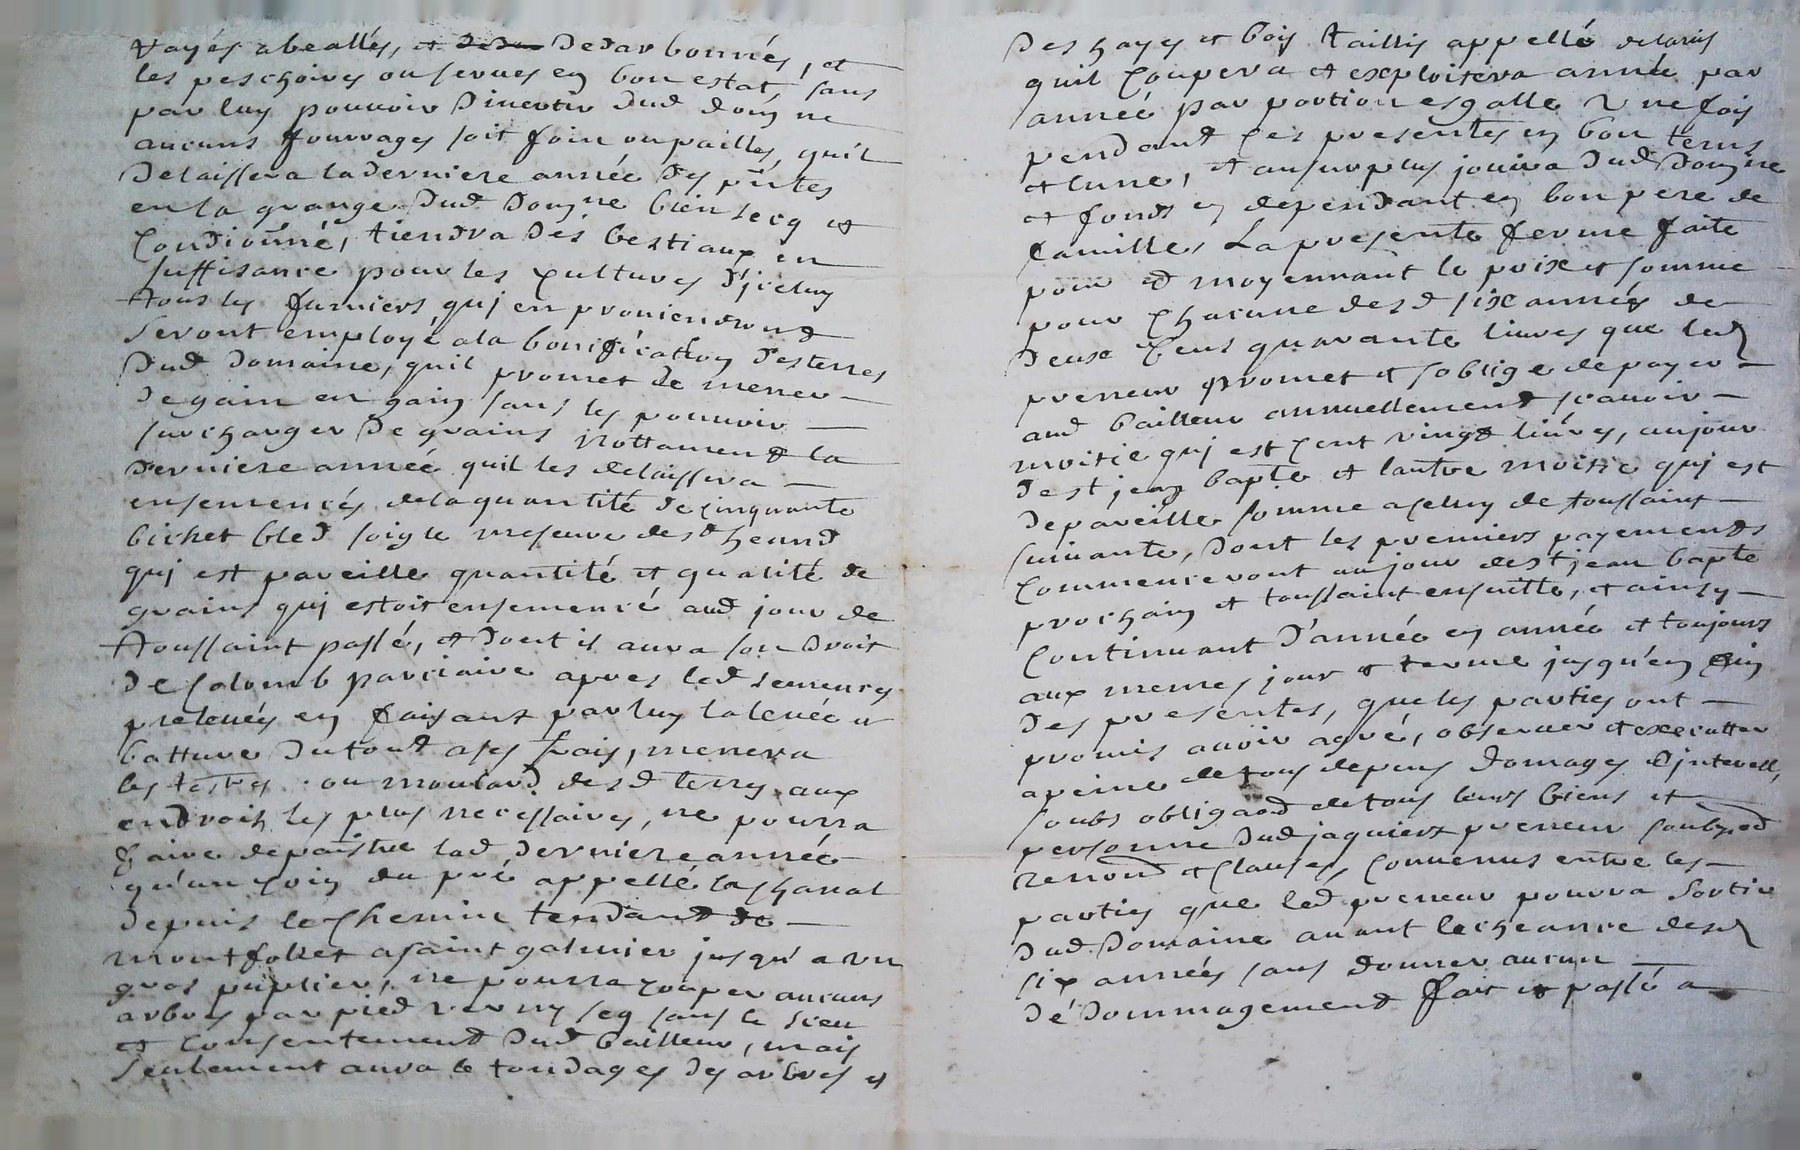 rayés abeallés, et dedarbonnés, et
les peschoires ou serues en bon estat, sans
par luy pouuoir diuertir dud domne
aucuns fourrages soit foin ou pailles, quil
delaissera la derniere année des pntes
en la grange dud domne bien secq et
Condionné, tiendra des bestiaux en
suffisance pour les Cultures d'jceluy
tous les fumiers quj en prouiendrond
seront employé a la bonification des terres
dud domaine, quil promet de mener
de gain en gain sans les pouuoir
surcharger de grains nottamend la
derniere année quil les delaissera
ensemencés de la quantité de cinquante
bichet bled soigle mesure des d heand
quj est pareille quantité et qualité de
grains quj estoit ensemencé aud jour de
toussaint passé, et dont il aura son droit
de Colomb parciaire apres led semences
preleués en faisant par luy la leuée et
batture du toud a ses frais, menera
les testes ou moulard des d terres aux
endroits les plus necessaires, ne pourra
faire depaistre lad derniere année
qu'un Coin du pré appellé la Chanal
depuis le Chemin tendand de
montfollet a saint galmier jusqu'a vn
gros puplier, ne pourra Couper aucuns
arbres par pied verny seq sans le sieu
et Consentement dud bailleur, mais
seulement aura le tondages des arbres et
des hayes et bois taillis appellé
quil Coupera et exploitera année par
année par portion esgalle vne fois
pendand Ces presentes en bon tems
et lune, et au surplus jouira dud Domne
et fonds en dependant en bon pere de
famille, La presente ferme faite
pour et moyennant le prix et somme
pour Chacune des d six années de
deux Cens quarante liures que led
preneur promet et soblige de payer
aud bailleur annuellement scauoir
moitié quj est Cent vingt liures, au jour
de st jean bapte et lautre moitié quj est
de pareille somme a Celuy de toussaint
suiuante, dont les premiers payements
Commenceront au jour de st jean bapte
prochain et toussaint ensuitte, et ainsy
Continuant d'année en année et toujours
aux memes jour et terme jusqu'en fin
des presentes, que les parties ont
promis auoir agré, obseruer et executter
a peine de tous depens domages et jnterest,
soubs obligaod de tous leurs biens et
personne dud jaquiers preneur soubz od
renond et Clauses, Conuenus entre les
parties que led preneur pourra sortir
dud Domaine auant lecheance desd
six années sans donner aucun
dédommagement fait et passé a